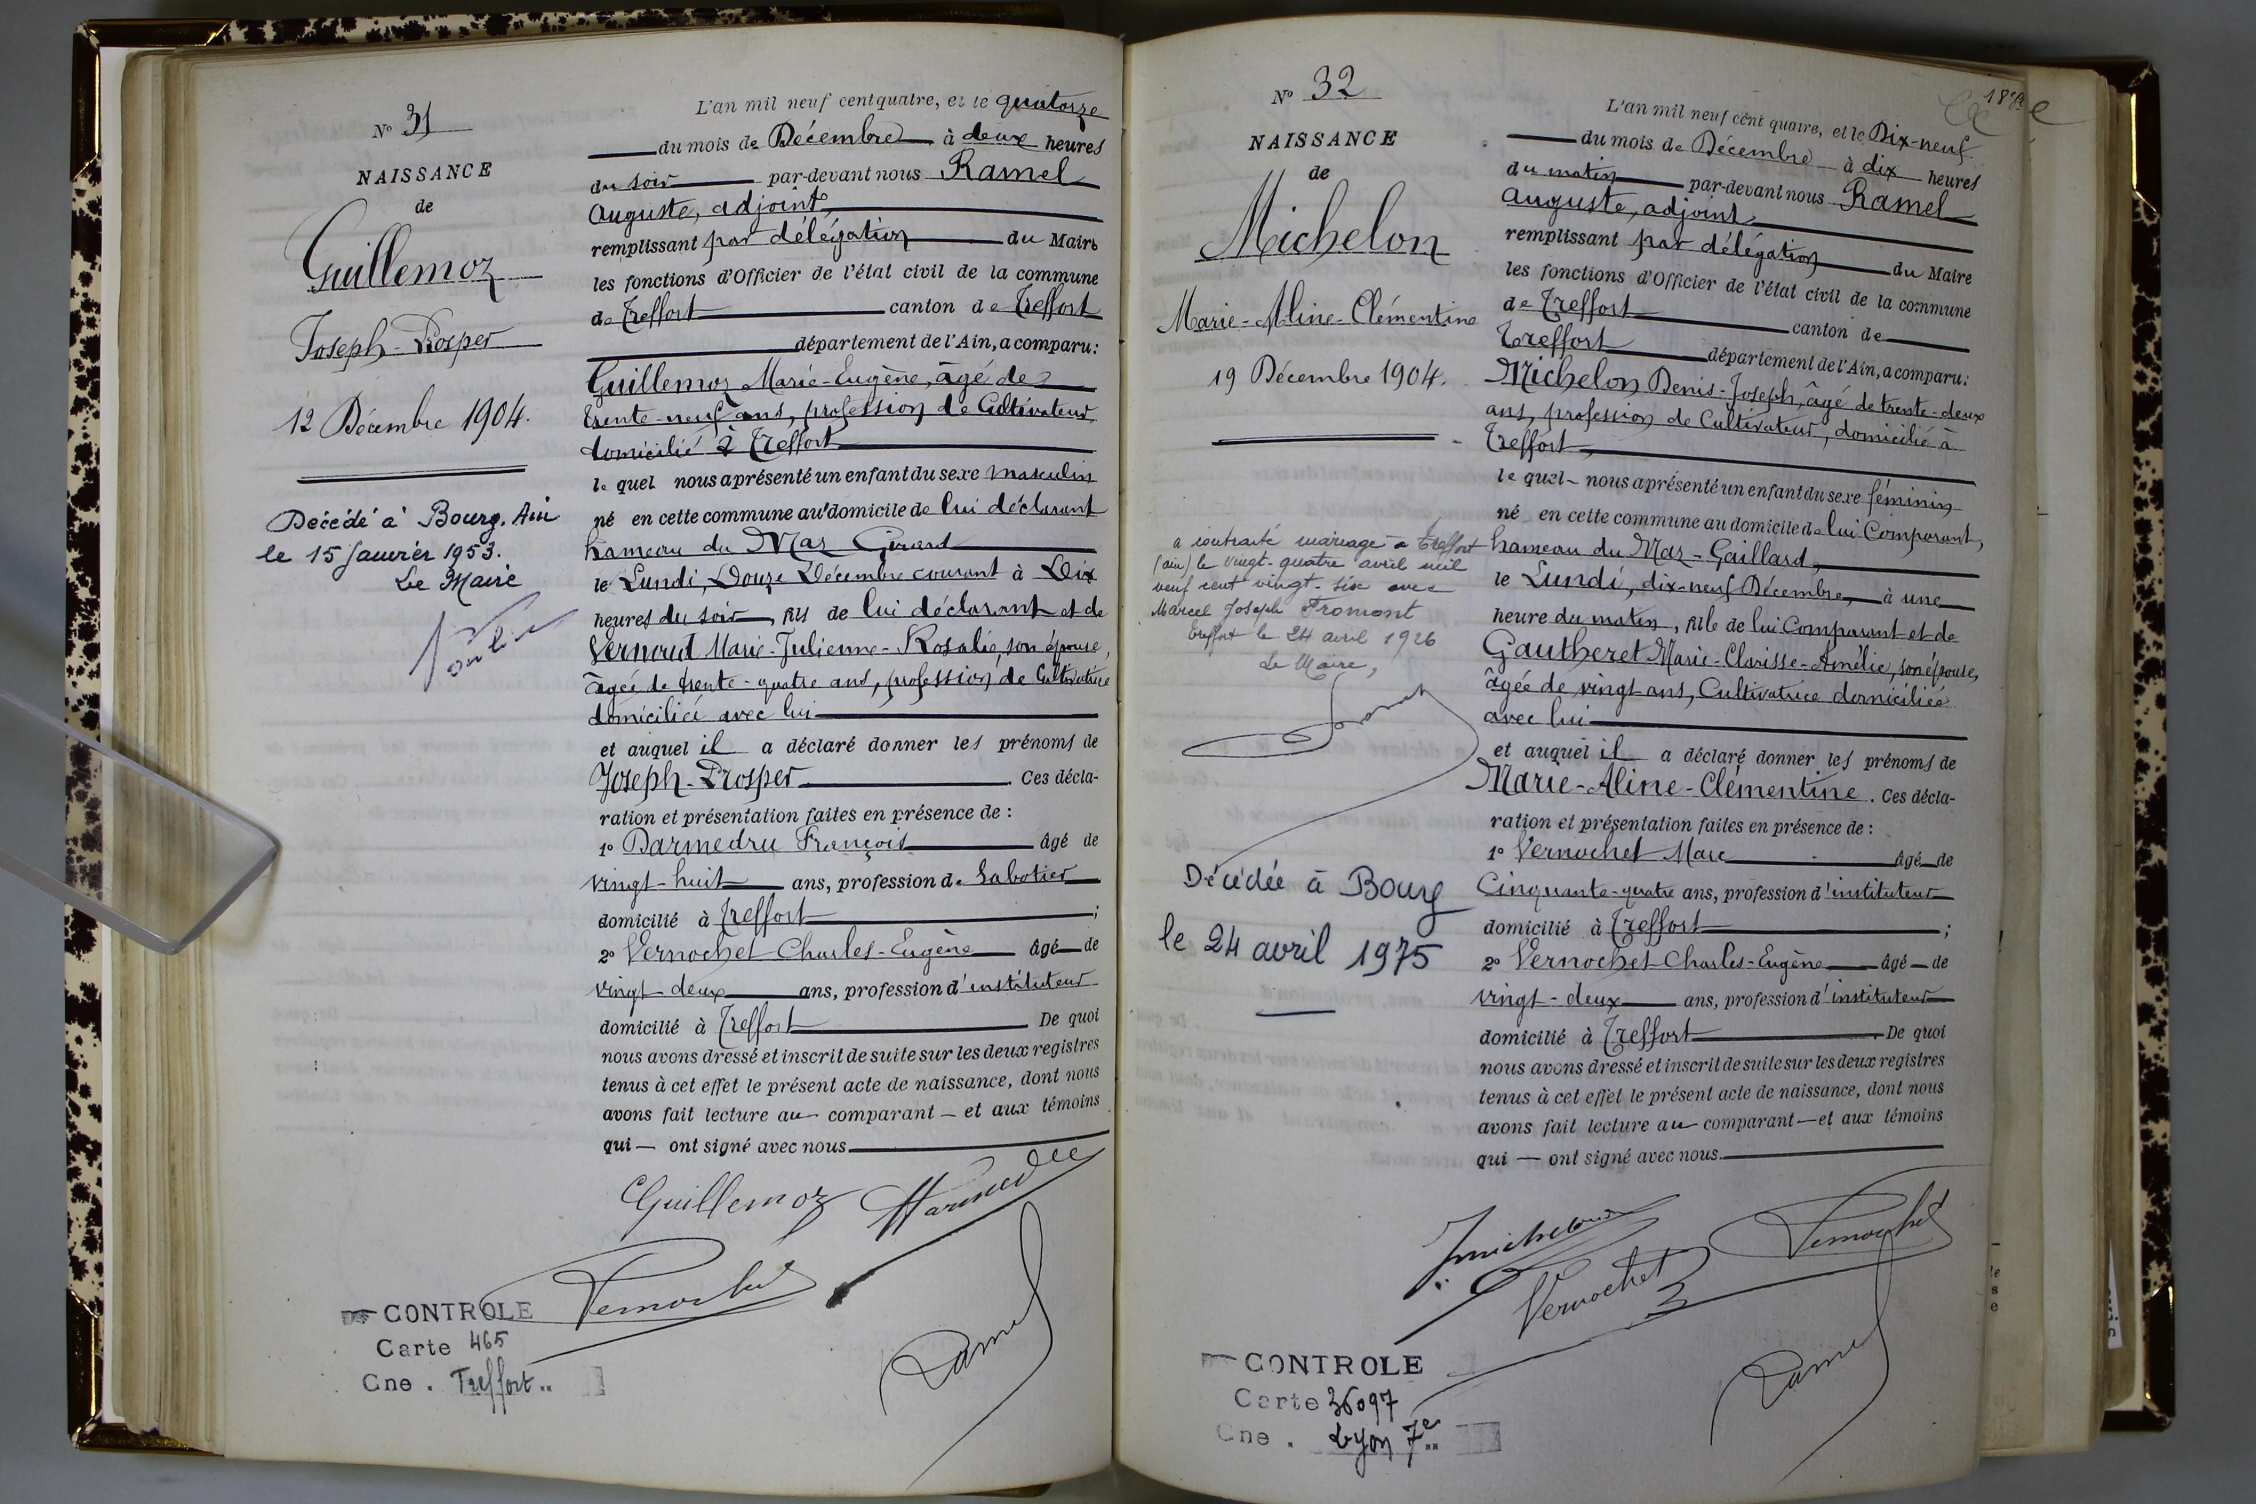 N° 31
NAISSANCE
de
Guillemoz
Joseph-Prosper
12 Décembre 1904.
Décédé à Bourg. Ain
le 15 Janvier 1953.
Le Maire
CONTROLE
Carte 465
Cne. Treffort..
L'an mil neuf cent quatre, et le quatorze
du mois de Décembre à deux heures
du soir par-devant nous Ramel
Auguste, adjoint
remplissant par délégation du Maire
les fonctions d'Officier de l'état civil de la commune
de Treffort canton de Treffort
département de l'Ain, a comparu:
Guillemoz Marie-Eugène, âgé de
trente-neuf ans, profession de Cultivateur
domicilié à Treffort
le quel nous a présenté un enfant du sexe masculin
né en cette commune au domicile de lui déclarant
hameau du Mas Girard
le Lundi, Douze Décembre courant à Dix
heures du soir, fils de lui déclarant et de
Vernoud Marie-Julienne-Rosalie, son épouse,
âgée de trente-quatre ans, profession de Cultivatrice
domiciliée avec lui
et auquel il a déclaré donner les prénoms de
Joseph-Prosper. Ces décla-
ration et présentation faites en présence de :
1° Darmedru François âgé de
vingt-huit ans, profession de Sabotier
domicilié à Treffort ;
2° Vernochet Charles-Eugène âgé de
vingt deux ans, profession d'instituteur
domicilié à Treffort De quoi
nous avons dressé et inscrit de suite sur les deux registres
tenus à cet effet le présent acte de naissance, dont nous
avons fait lecture au comparant et aux témoins
qui ont signé avec nous
Guillemoz
Vernochet
Ramel
N° 32
NAISSANCE
de
Michelon
Marie-Aline-Clémentine
19 Décembre 1904.
a contracté mariage à Treffort
(ain) le vingt-quatre avril mil
neuf cent vingt-six avec
Marcel Joseph Fromont
Treffort le 24 avril 1926
Le Maire,
Décédée à Bourg
le 24 avril 1975
CONTROLE
Carte 36097
Cne. Lyon 7e..
L'an mil neuf cent quatre, et le Dix-neuf
du mois de Décembre à dix heures
du matin par-devant nous Ramel
Auguste, adjoint
remplissant par délégation du Maire
les fonctions d'Officier de l'état civil de la commune
de Treffort canton de
Treffort département de l'Ain, a comparu:
Michelon Denis-Joseph, âgé de trente-deux
ans, profession de Cultivateur, domicilié à
Treffort,
le quel nous a présenté un enfant du sexe féminin
né en cette commune au domicile de lui Comparant,
hameau du Mas-Gaillard,
le Lundi, dix-neuf Décembre, à une
heure du matin, fille de lui Comparant et de
Gautheret Marie-Clarisse-Amélie, son épouse,
âgée de vingt ans, Cultivatrice domiciliée
avec lui
et auquel il a déclaré donner les prénoms de
Marie-Aline-Clémentine. Ces décla-
ration et présentation faites en présence de :
1° Vernochet Marc âgé de
Cinquante-quatre ans, profession d'instituteur
domicilié à Treffort ;
2° Vernochet Charles-Eugène âgé de
vingt-deux ans, profession d'instituteur
domicilié à Treffort De quoi
nous avons dressé et inscrit de suite sur les deux registres
tenus à cet effet le présent acte de naissance, dont nous
avons fait lecture au comparant et aux témoins
qui ont signé avec nous.
Vernochet
Vernochet
Ramel